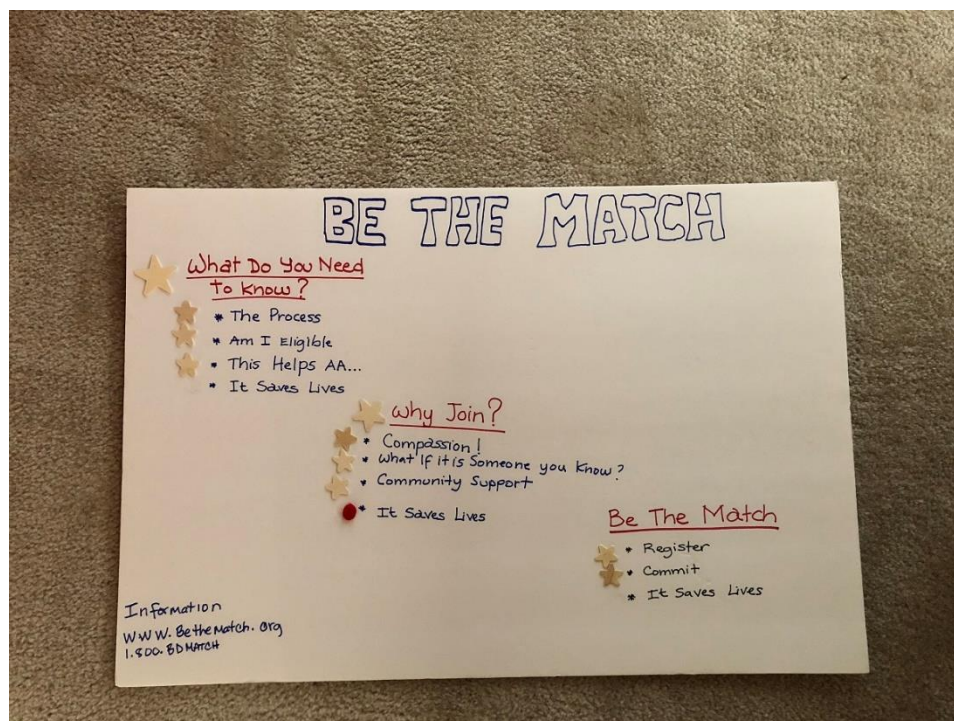 BE THE MATCH
What Do You Need
To Know?
* The Process
* Am I Eligible
* This Helps AA...
* It Saves Lives
Why Join?
* Compassion!
* What If it is Someone you Know?
* Community Support
* It Saves Lives
Be The Match
* Register
* Commit
* It Saves Lives
Information
WWW.BetheMatch.org
1.800.BDMATCH